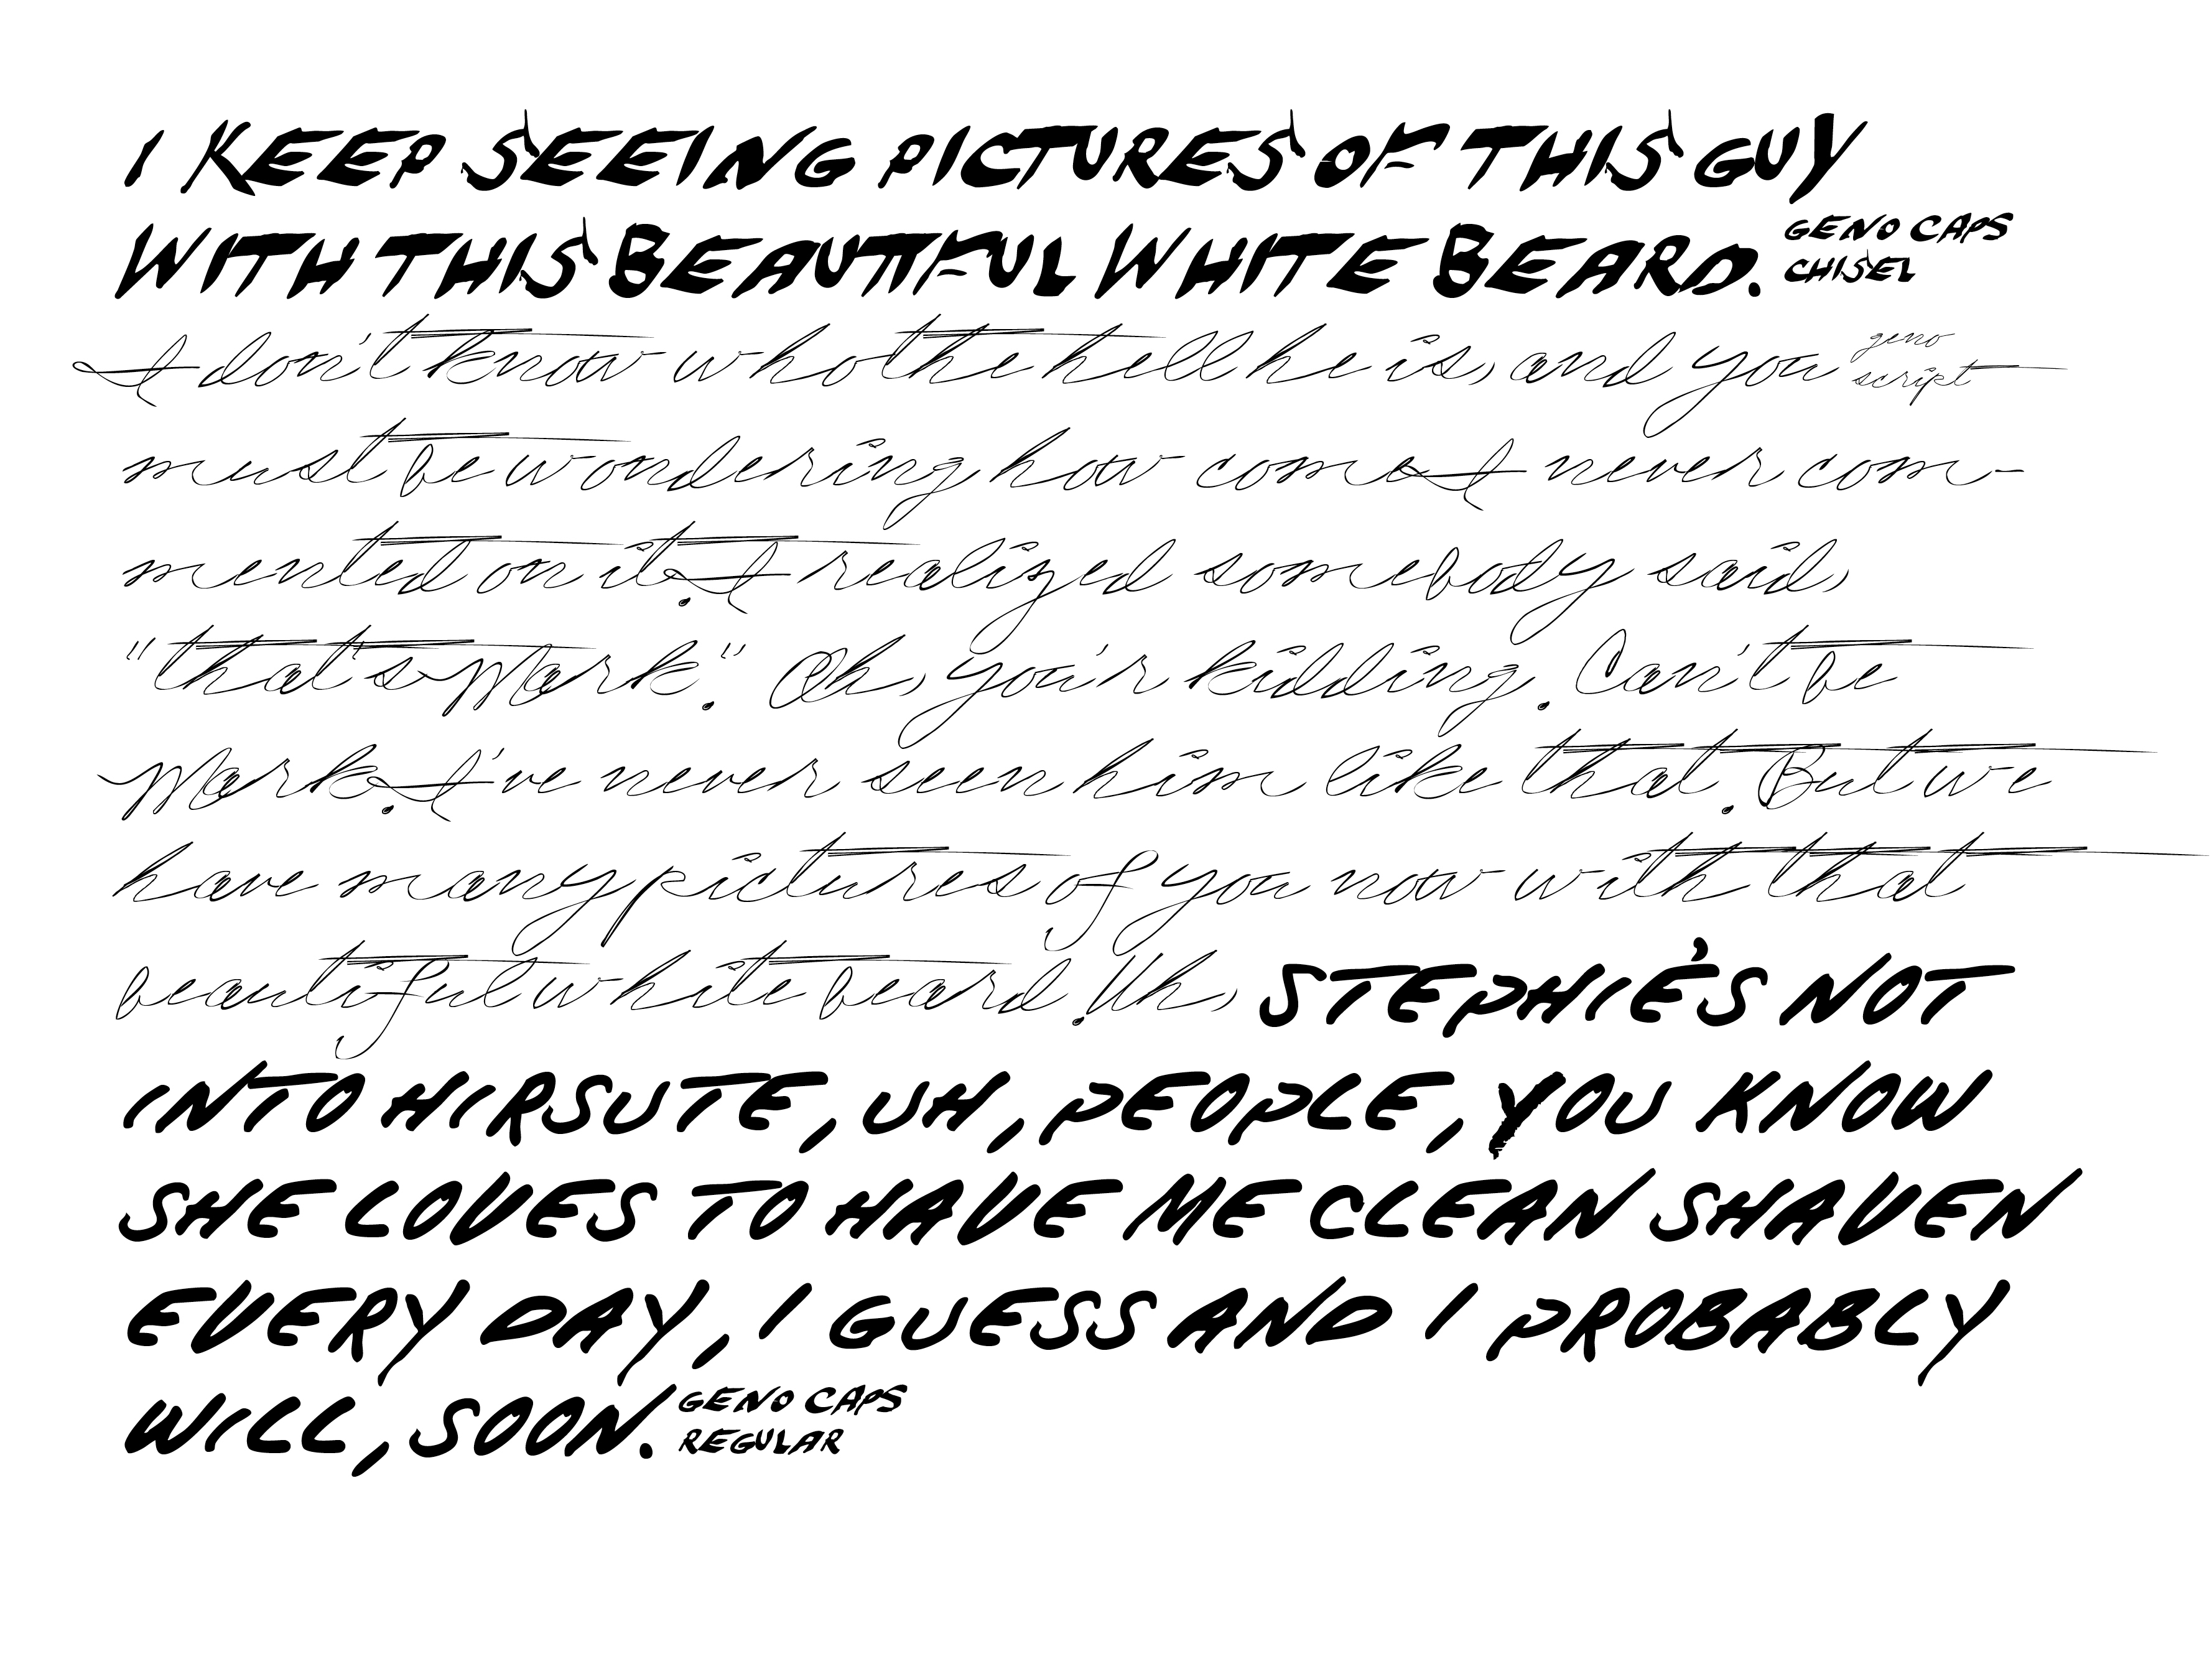 I KEEP SEEING PICTURES OF THIS GUY
WITH THIS BEAUTIFUL WHITE BEARD.
GENO CAPS
CHISEL
I don't know who the hell he is, and you
geno
script
must be wondering how come I never com-
mented on it. I realized somebody said,
"that's Mark." Oh, you'r kidding. Can't be
Mark. I've never seen him like that. But we
have many pictures of you now with that
beautiful white beard. Uh, STEPHIE'S NOT
INTO HIRSUTE, UH, PEOPLE, YOU KNOW
SHE LOVES TO HAVE ME CLEAN SHAVEN
EVERY DAY, I GUESS AND I PROBABLY
WILL, SOON.
GENO CAPS
REGULAR